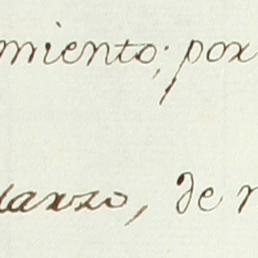 miento; por
arzo, de